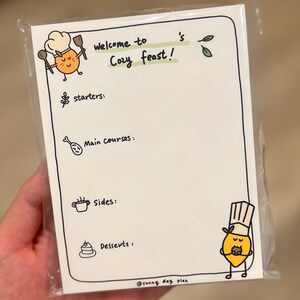 Welcome to 's
Cozy feast!
starters:
Main Courses:
Sides:
Desserts:
@sunny day plan